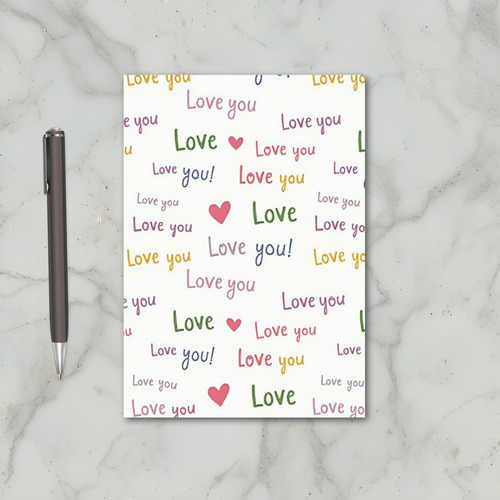 Love you
you!
Love you
Love you
Love you
Love
Love you
Love you!
Love you
Love you
Love
Love you
Love you
Love you!
Love you
Love you
Love you
Love you
Love you
Love
Love you
Love you!
Love you
Love you
Love you
Love
Love you
Love you